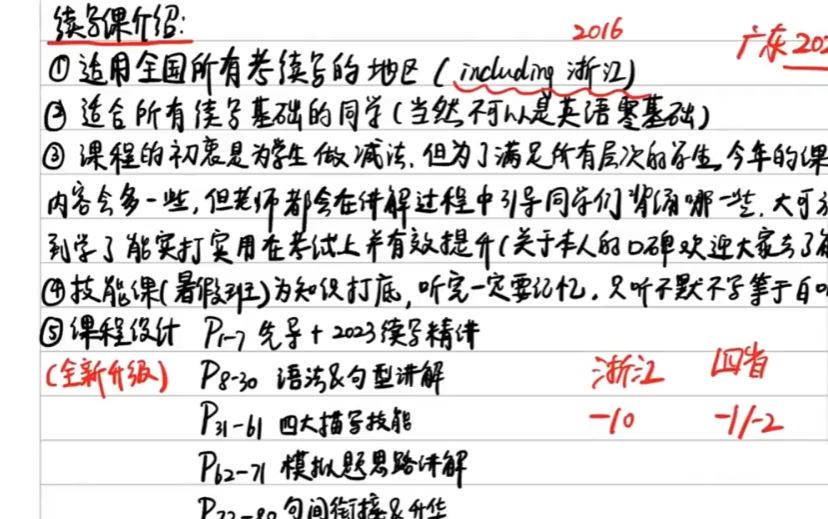 续写课介绍:
2016
广东 202
① 适用全国所有考续写的地区 (including 浙江)
② 适合所有续写基础的同学(当然不可以是英语零基础)
③ 课程的初衷是为学生做减法,但为了满足所有层次的学生,今年的课
内容会多一些,但老师都会在讲解过程中引导同学们背诵哪一些,大可
到学了能实打实用在考试上并有效提升(关于本人的口碑欢迎大家去了解
④ 技能课(暑假班)为知识打底,听完一定要记忆,只听不默不写等于白
⑤ 课程设计 P1-7 先导 + 2023续写精讲
(全新升级) P8-30 语法&句型讲解 浙江 四省
P31-61 四大描写技能 -10 -1/-2
P62-71 模拟题思路讲解
P72-80 句间衔接&升华